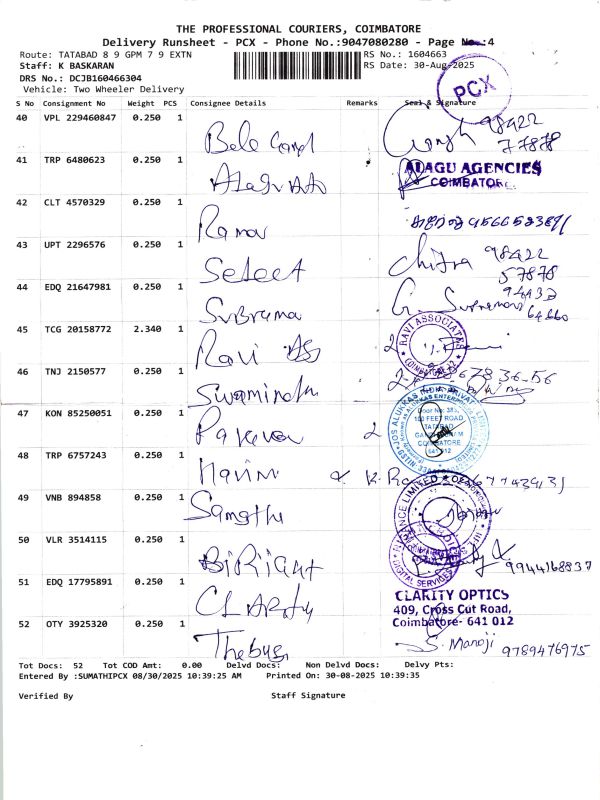 THE PROFESSIONAL COURIERS, COIMBATORE
Delivery Runsheet - PCX - Phone No.:9047080280 - Page No.:4
Route: TATABAD 8 9 GPM 7 9 EXTN
RS No.: 1604663
Staff: K BASKARAN
RS Date: 30-Aug-2025
DRS No.: DCJB160466304
Vehicle: Two Wheeler Delivery
PCX
S No Consignment No Weight PCS Consignee Details Remarks Seal & Signature
40 VPL 229460847 0.250 1 98422 77878
41 TRP 6480623 0.250 1 ALAGU AGENCIES
COIMBATORE.
42 CLT 4570329 0.250 1 Raman
43 UPT 2296576 0.250 1 Select Chitra 98422 57878
44 EDQ 21647981 0.250 1 Subrama G.
45 TCG 20158772 2.340 1 Ravi RAVI ASSOCIATES COIMBATORE
46 TNJ 2150577 0.250 1 Swaminathan
47 KON 85250051 0.250 1 2 JOS ALUKKAS INDIA PRIVATE LIMITED
100 FEET ROAD
TATABAD
COIMBATORE
641 012
48 TRP 6757243 0.250 1
49 VNB 894858 0.250 1
50 VLR 3514115 0.250 1 Brilliant DIGITAL SERVICES 9944168837
51 EDQ 17795891 0.250 1 CLARity CLARITY OPTICS
409, Cross Cut Road,
Coimbatore- 641 012
52 OTY 3925320 0.250 1 S. Manoji 9789476975
Tot Docs: 52 Tot COD Amt: 0.00 Delvd Docs: Non Delvd Docs: Delvy Pts:
Entered By :SUMATHIPCX 08/30/2025 10:39:25 AM Printed On: 30-08-2025 10:39:35
Verified By Staff Signature